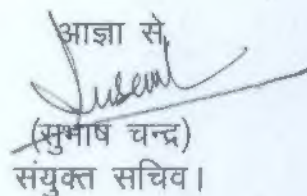 आज्ञा से,
(सुभाष चन्द्र)
संयुक्त सचिव।